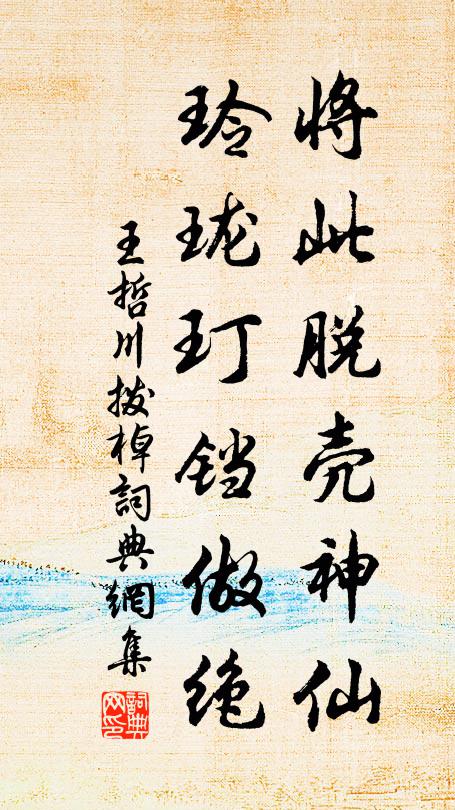 將此脱壳神仙
玲珑玎铛做绝
王哲川拨棹詞典網集
詞典网印